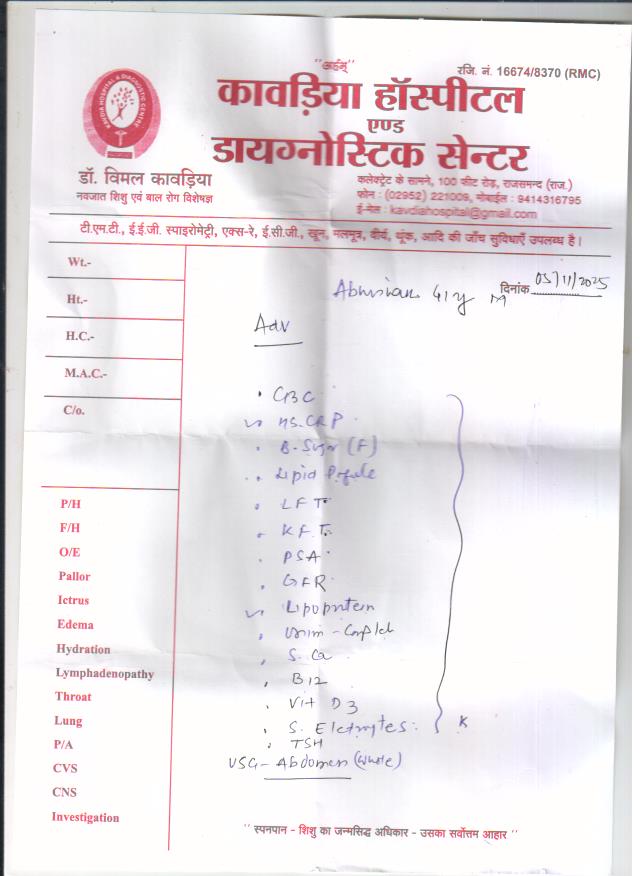 "अर्हम्"
रजि. नं. 16674/8370 (RMC)
KAVDIA HOSPITAL & DIAGNOSTIC CENTRE
कावड़िया हॉस्पीटल
एण्ड
डायग्नोस्टिक सेन्टर
डॉ. विमल कावड़िया
नवजात शिशु एवं बाल रोग विशेषज्ञ
कलेक्ट्रेट के सामने, 100 फीट रोड़, राजसमन्द (राज.)
फोन : (02952) 221009, मोबाईल : 9414316795
ई-मेल : kavdiahospital@gmail.com
टी.एम.टी., ई.ई.जी. स्पाइरोमेट्री, एक्स-रे, ई.सी.जी., खून, मलमूत्र, वीर्य, थूंक, आदि की जाँच सुविधाएँ उपलब्ध है।
Wt.-
41y M दिनांक 05/11/2025
Ht.-
Adv
H.C.-
M.A.C.-
CBC
C/o.
HS. CRP
B. Sugar (F)
Lipid Profile
P/H
LFT
F/H
K.F.T.
O/E
PSA
Pallor
GFR
Ictrus
Lipoprotein
Edema
Urine - Complet
Hydration
S. Ca
Lymphadenopathy
B12
Throat
Vit D3
Lung
S. Eletrolytes. K
P/A
TSH
CVS
USG - Abdomen (Whole)
CNS
Investigation
"स्पनपान - शिशु का जन्मसिद्ध अधिकार - उसका सर्वोत्तम आहार"